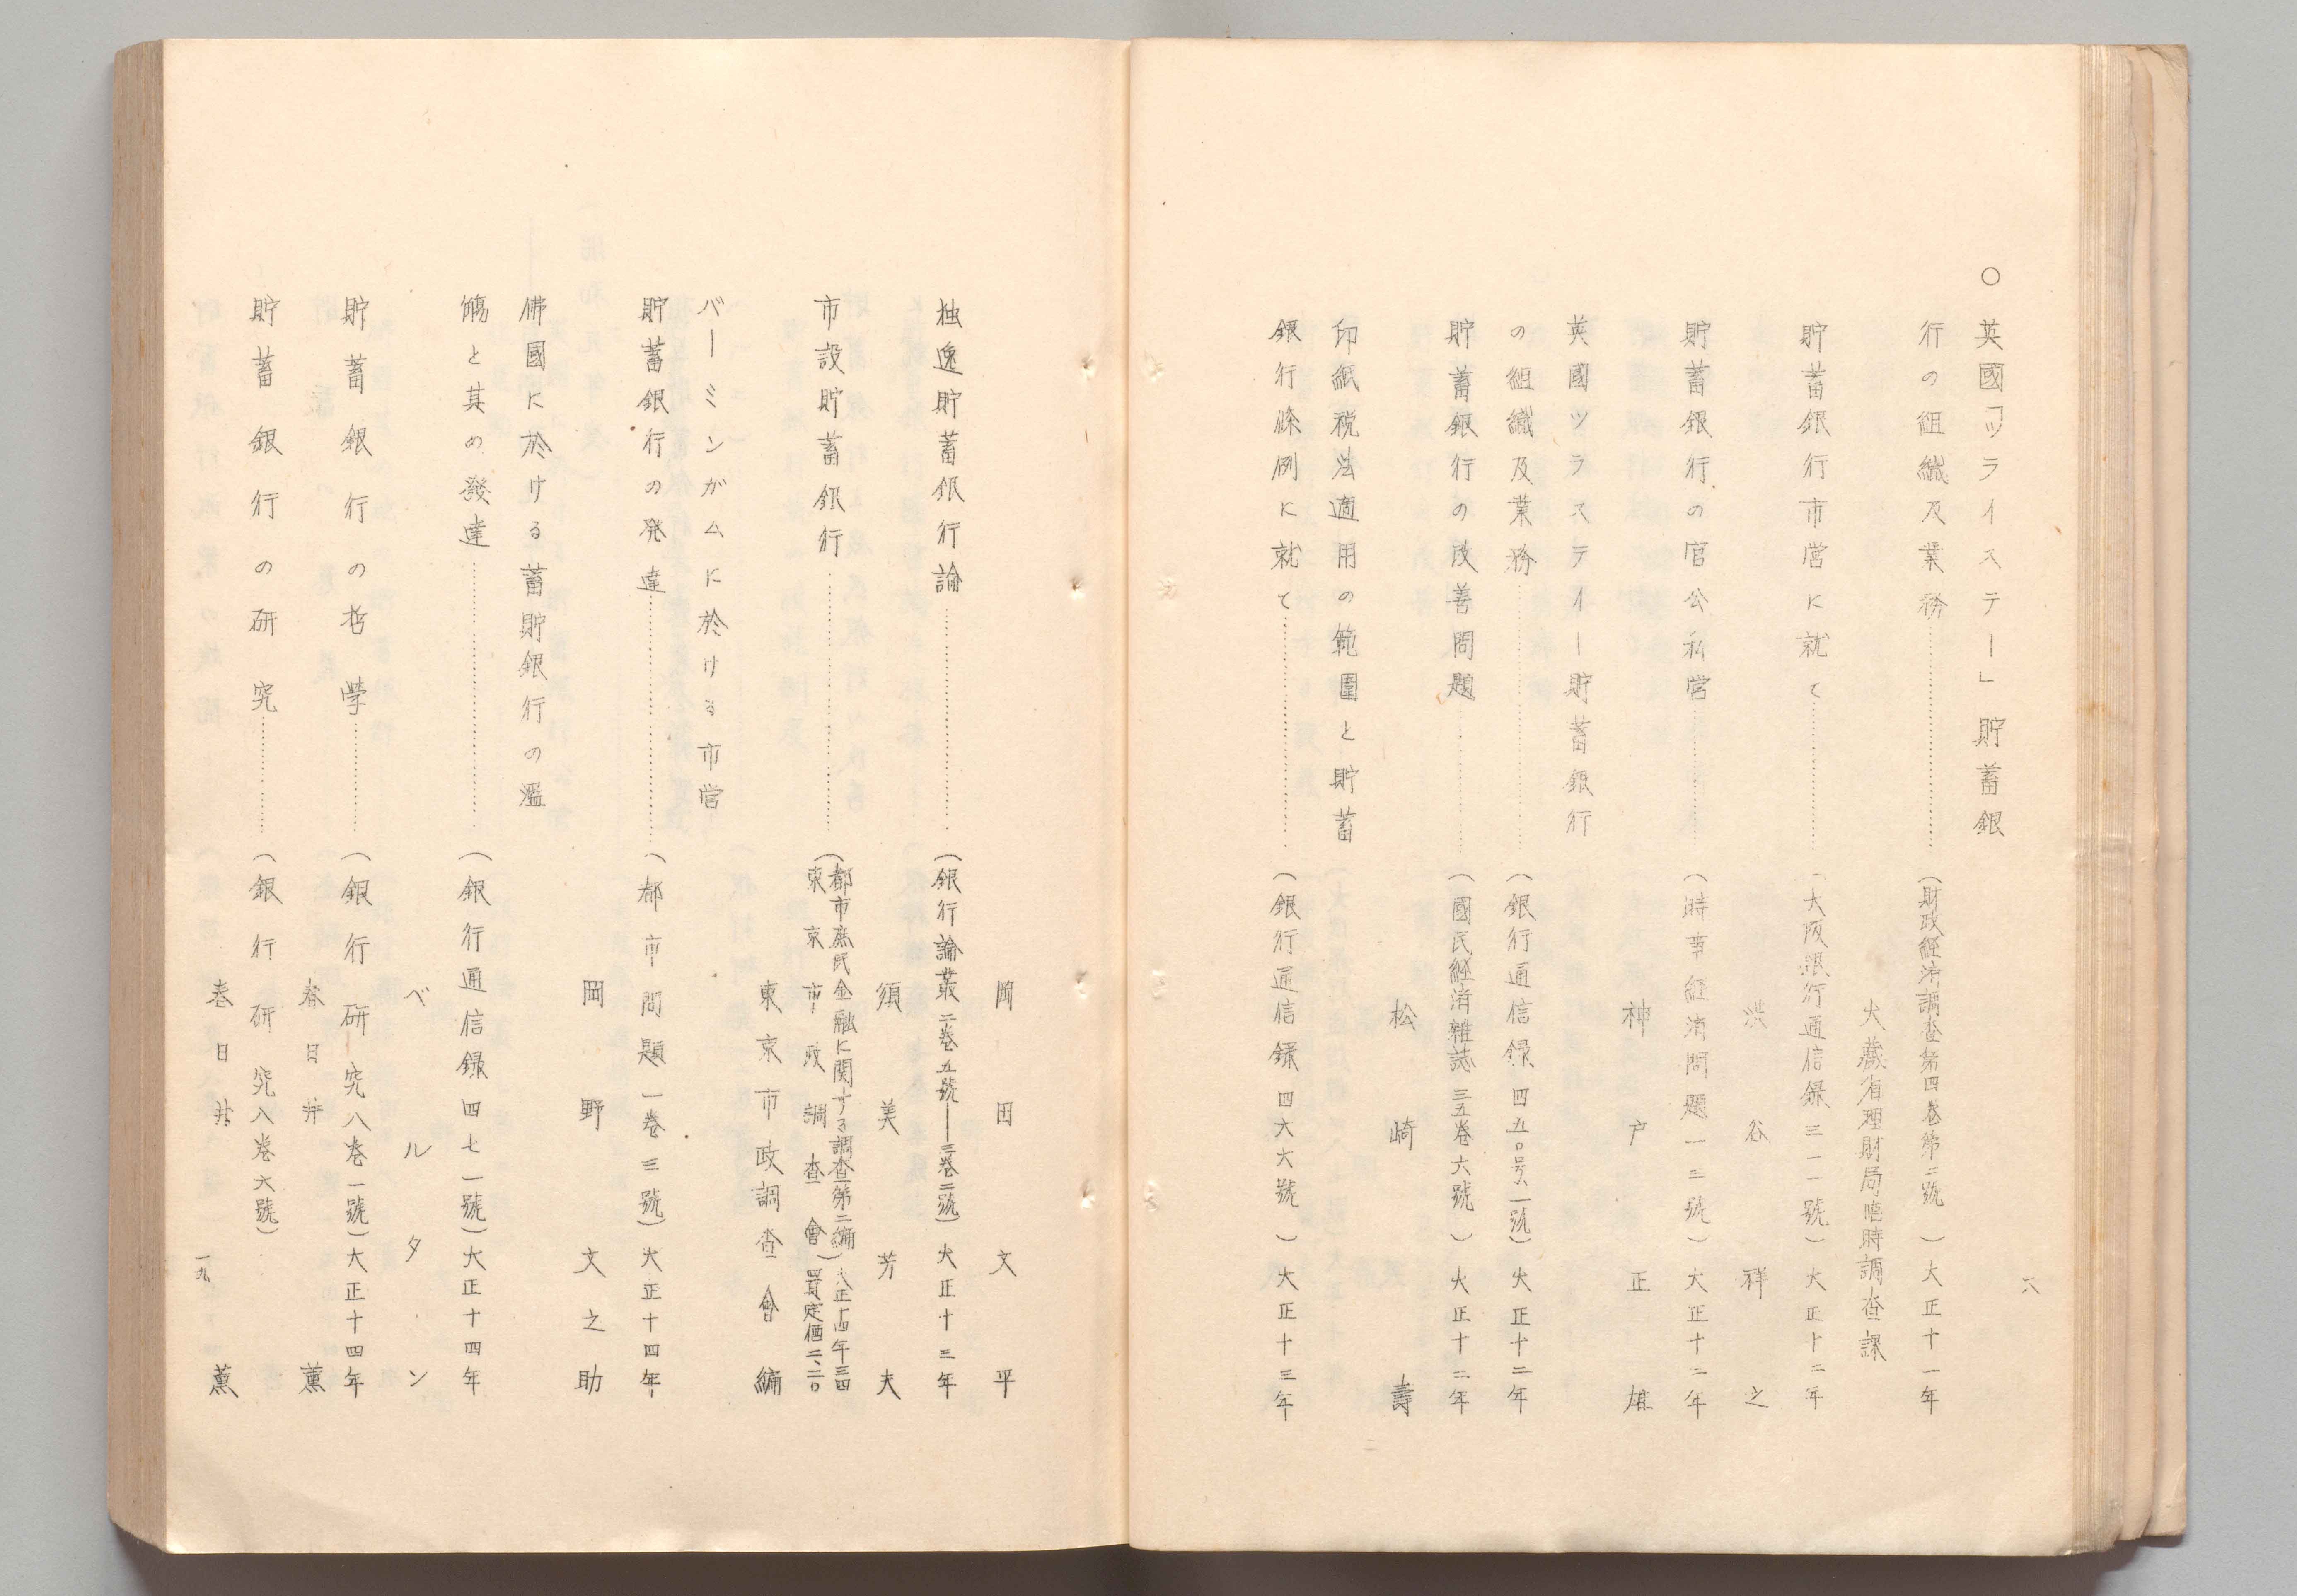 六
○英國「ツライステー」貯蓄銀
行の組織及業務…………(財政経済調査第四巻第三號)大正十一年
大藏省理財局臨時調査課
貯蓄銀行市営に就て…………(大阪銀行通信録三一一號)大正十二年
渋谷祥之
貯蓄銀行の官公私営…………(時事経済問題一三號)大正十二年
神戸正雄
英國ツラスティー貯蓄銀行
の組織及業務…………(銀行通信録四五〇号、一號)大正十二年
貯蓄銀行の改善問題…………(國民経済雜誌三五巻六號)大正十二年
松崎壽
印紙税法適用の範圍と貯蓄
銀行條例に就て…………(銀行通信録四六六號)大正十三年
岡田文平
独逸貯蓄銀行論…………(銀行論叢二巻五號―三巻二號)大正十三年
須美芳夫
市設貯蓄銀行…………(都市庶民金融に関する調査第二編)大正十四年三四
東京市政調査會 買定価二、二〇
東京市政調査會編
バーミンガムに於ける市営
貯蓄銀行の発達…………(都市問題一巻三號)大正十四年
岡野文之助
佛國に於ける蓄貯銀行の濫
觴と其の發達…………(銀行通信録四七一號)大正十四年
ベルタン
貯蓄銀行の哲学…………(銀行研究八巻一號)大正十四年
春日井薫
貯蓄銀行の研究…………(銀行研究八巻六號)
春日井薫
一九